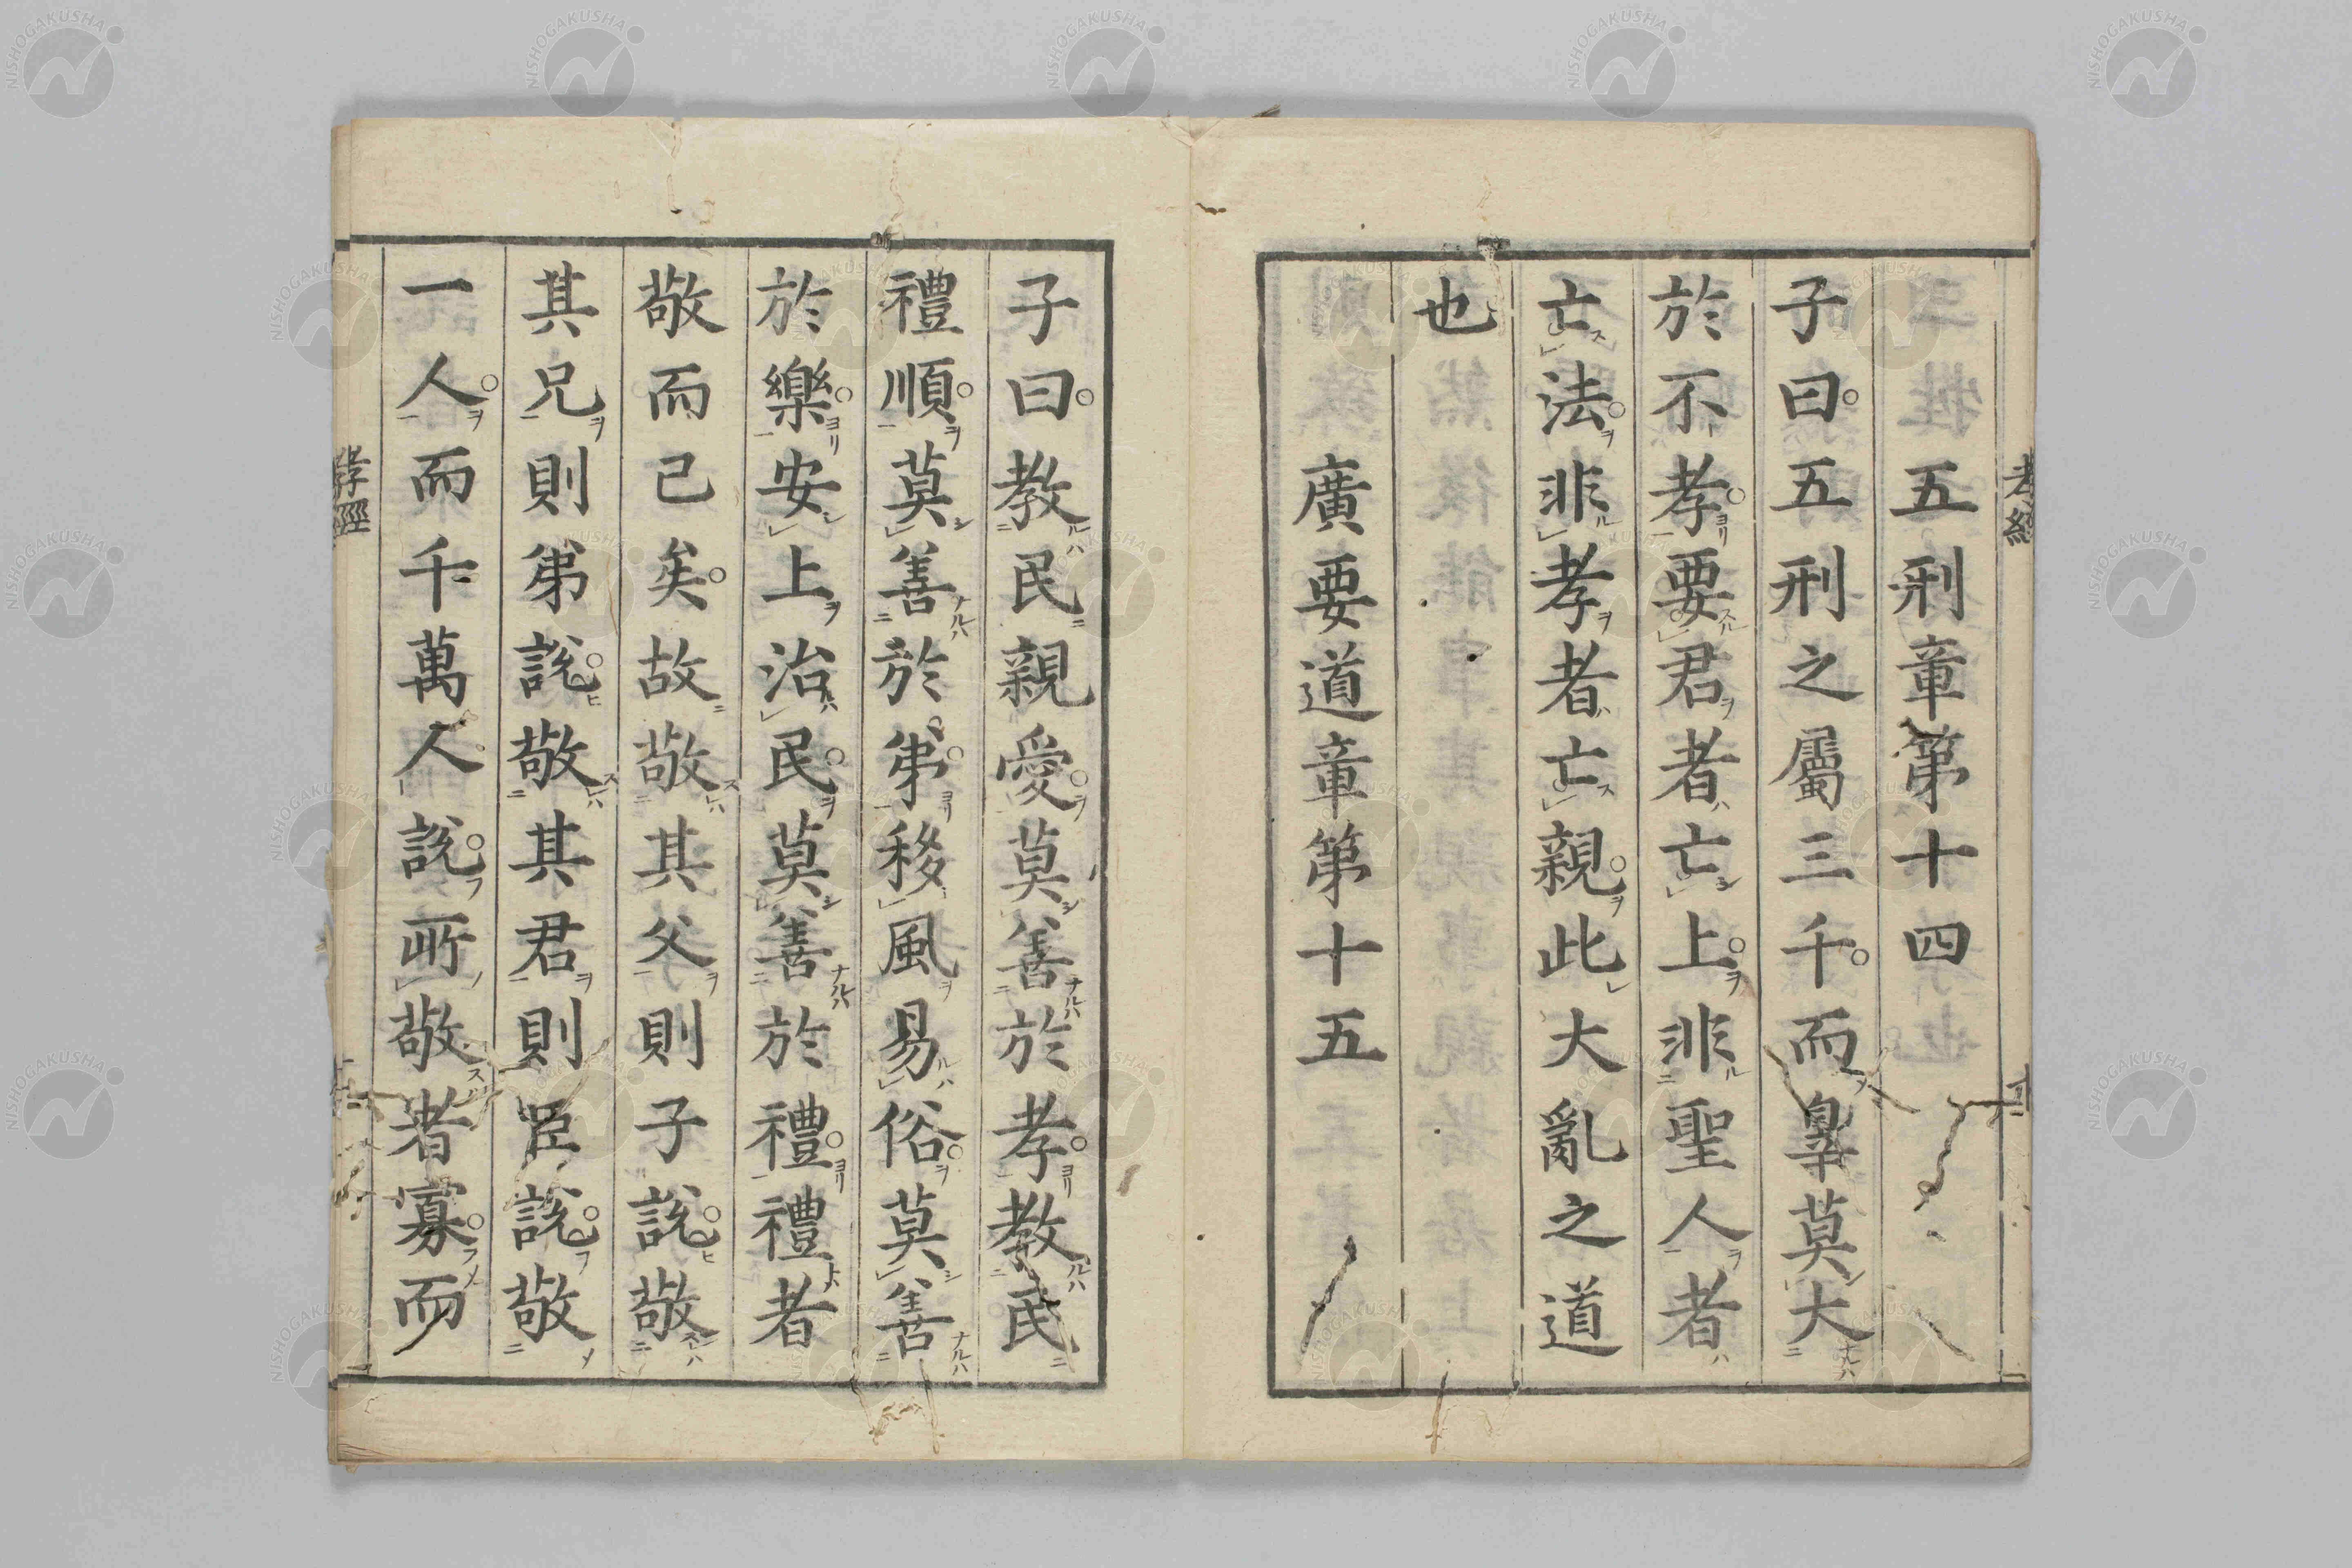 五刑章第十四
子曰五刑之屬三千而辠莫大
於不孝要君者亡上非聖人者
亡法非孝者亡親此大亂之道
也
廣要道章第十五
子曰教民親愛莫善於孝教民
禮順莫善於弟移風易俗莫善
於樂安上治民莫善於禮禮者
敬而已矣故敬其父則子說敬
其兄則弟說敬其君則臣說敬
一人而千萬人說所敬者寡而
孝經
NISHOGAKUSHA